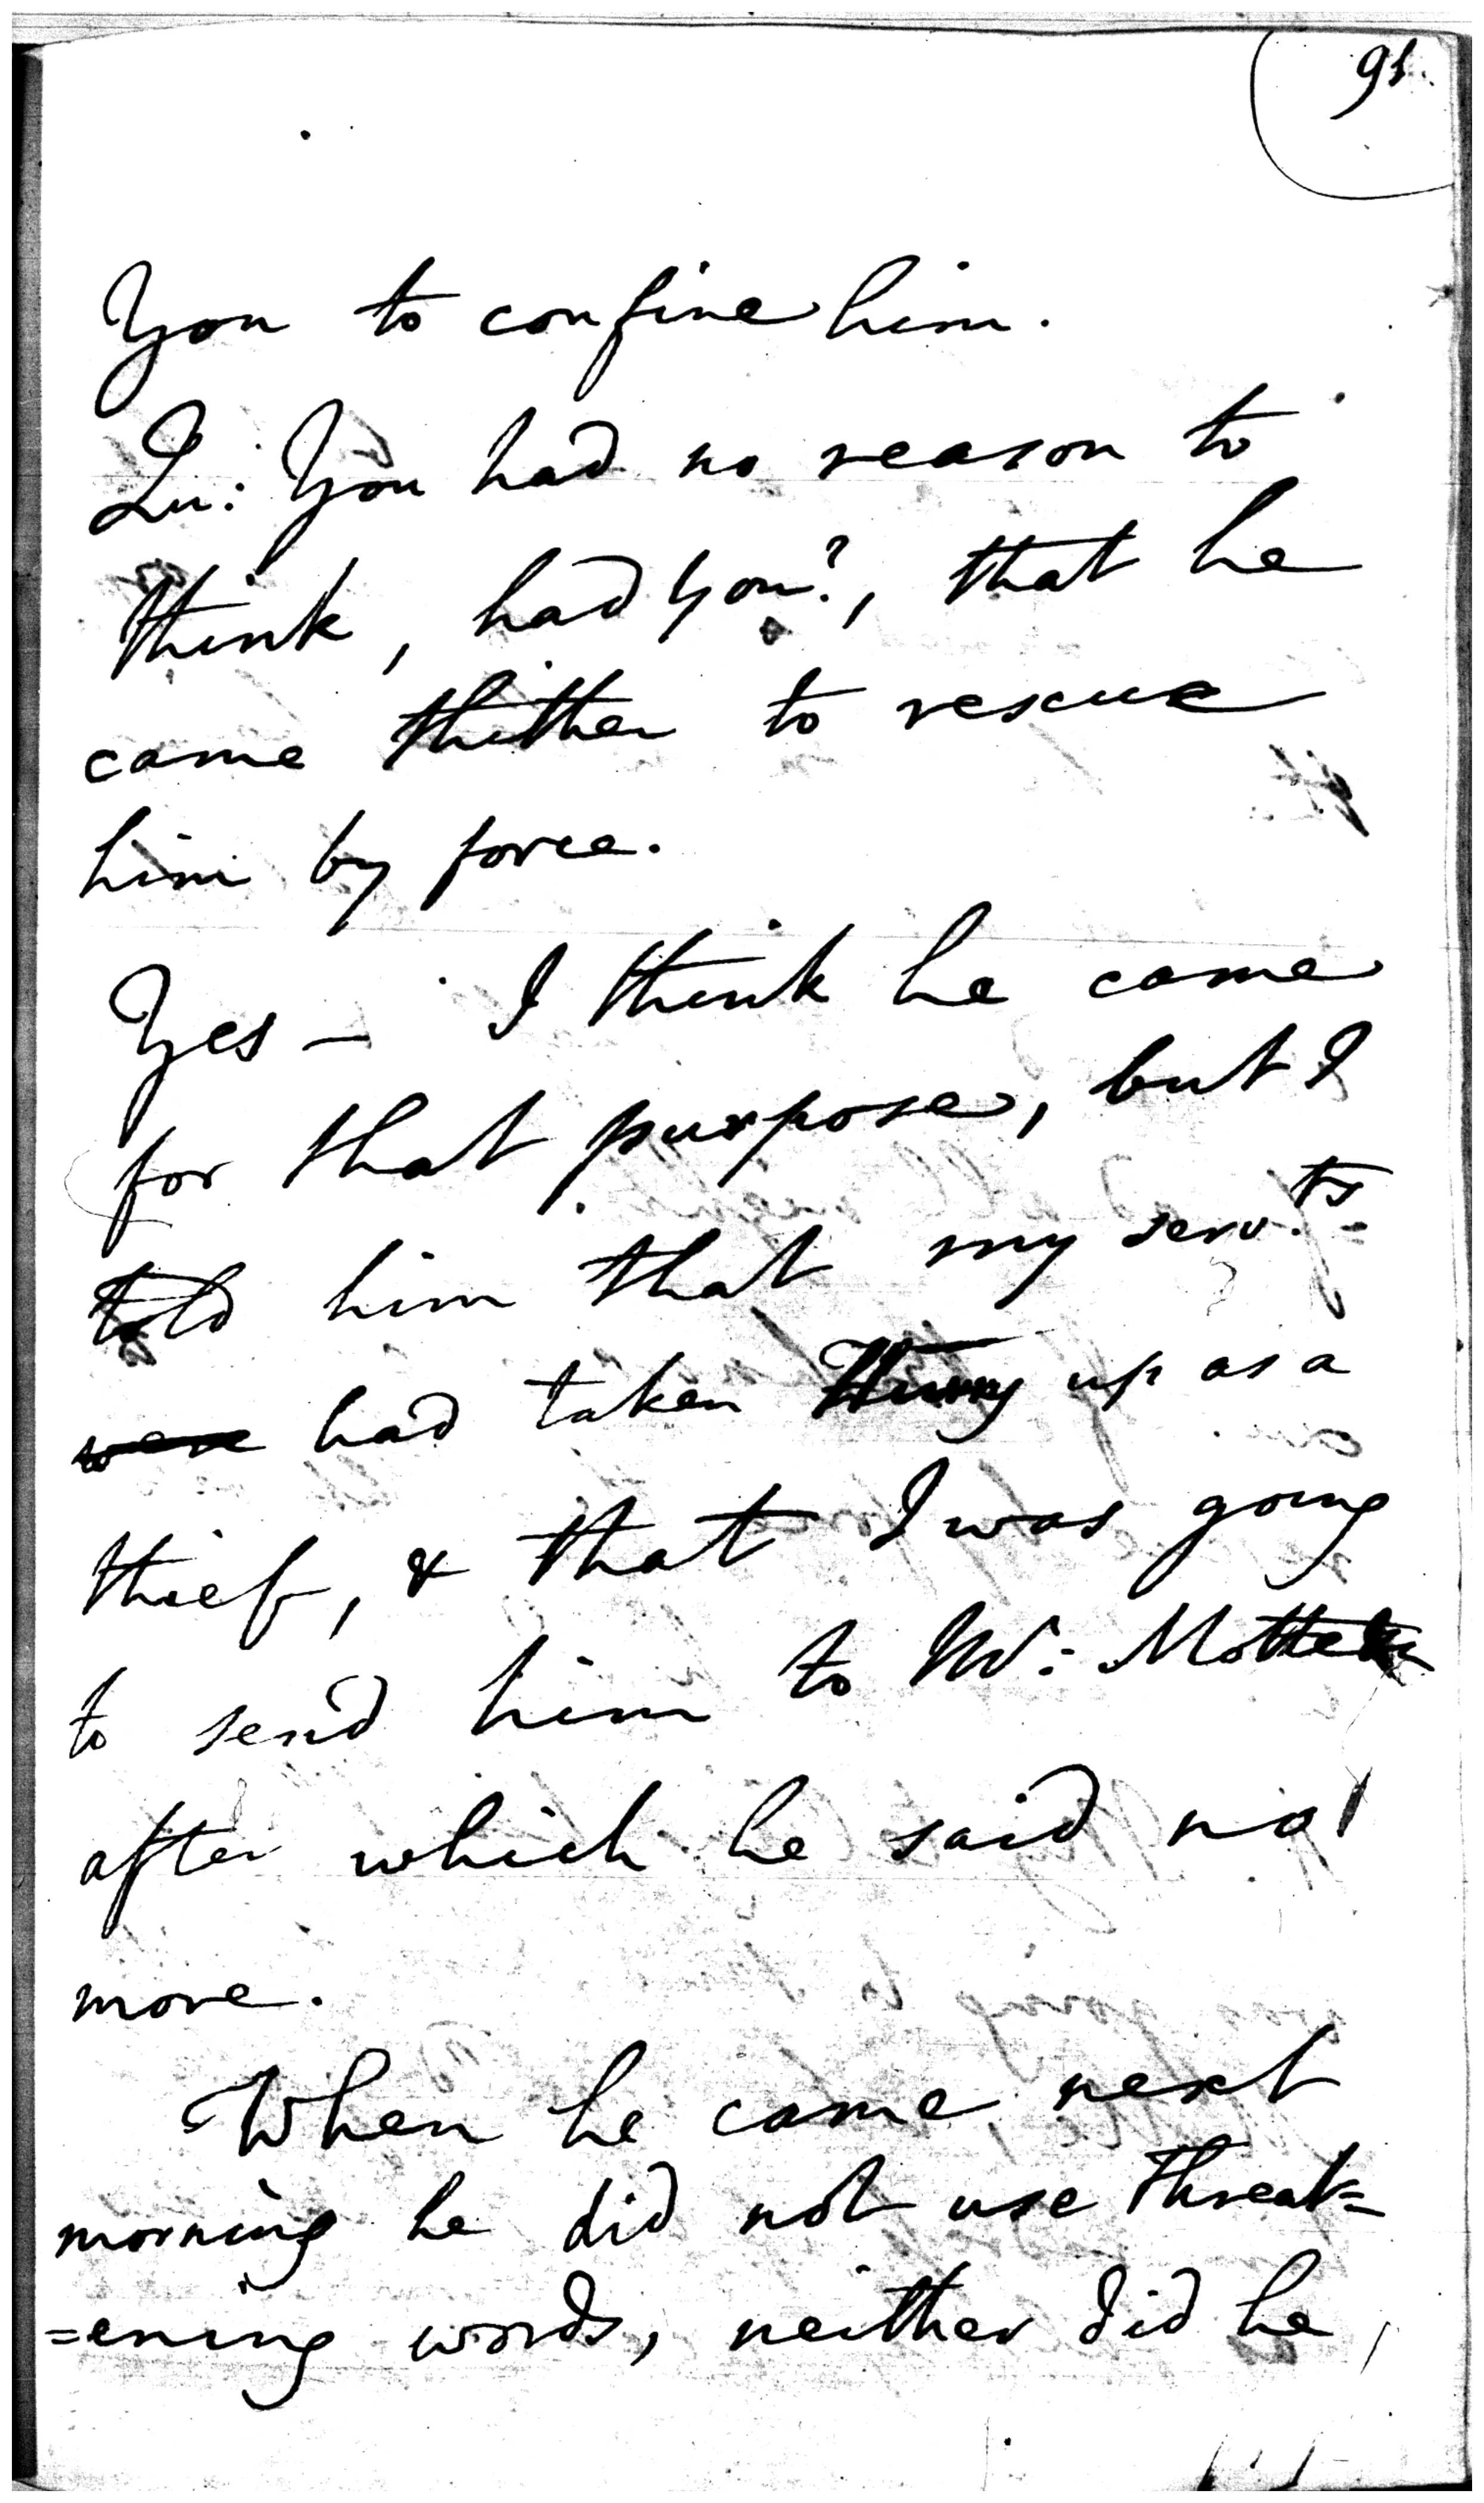 91
You to confine him.
Qu: You had no reason to
think, had you?, that he
came thither to rescue
him by force.
Yes — I think he came
for that purpose, but I
told him that my serv.ts
were had taken up as a
thief, & that I was going
to send him to Mr: Motte
after which he said no
more.
When he came next
morning he did not use threat=
=ening words, neither did he